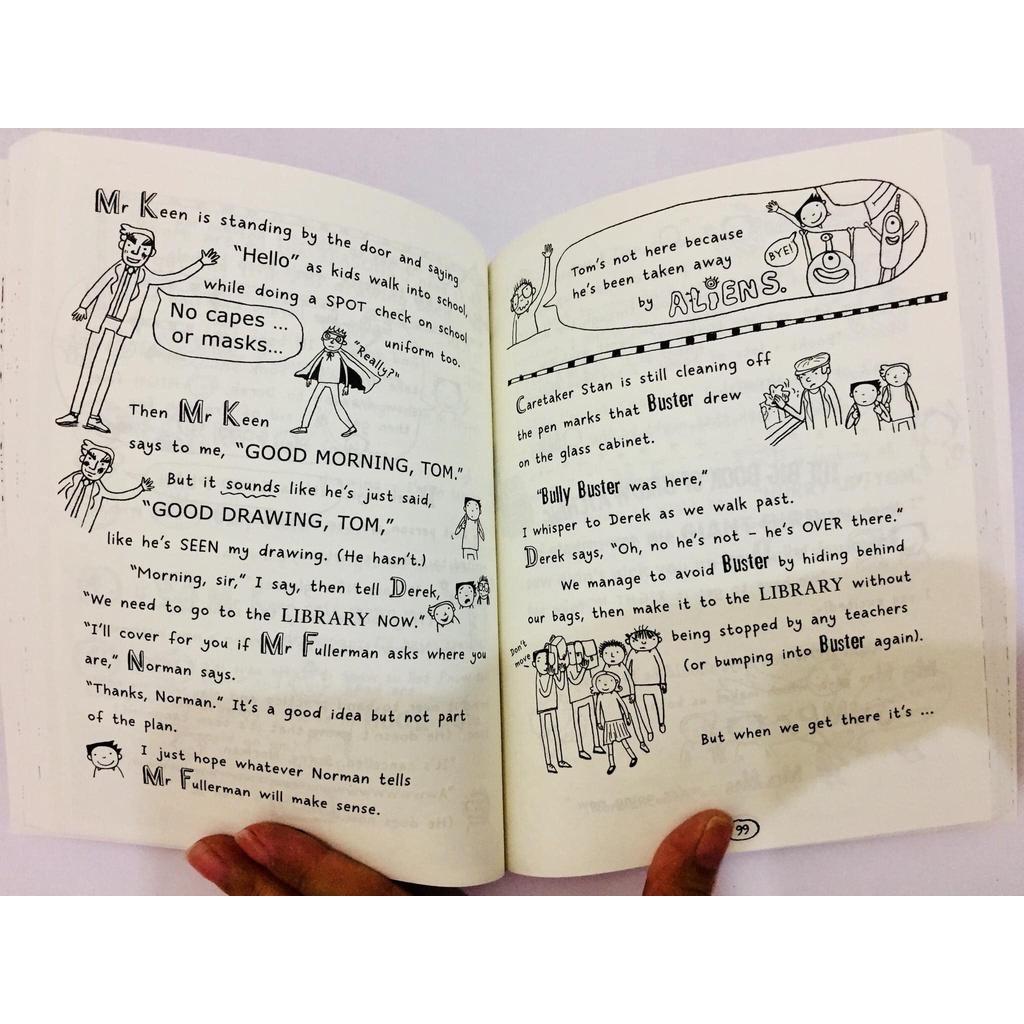 Mr Keen is standing by the door and saying
"Hello" as kids walk into school,
while doing a SPOT check on school
uniform too.
No capes ...
or masks...
"Really?"
Then Mr Keen
says to me, "GOOD MORNING, TOM."
But it sounds like he's just said,
"GOOD DRAWING, TOM,"
like he's SEEN my drawing. (He hasn't.)
"Morning, sir," I say, then tell Derek,
"We need to go to the LIBRARY NOW."
"I'll cover for you if Mr Fullerman asks where you
are," Norman says.
"Thanks, Norman." It's a good idea but not part
of the plan.
I just hope whatever Norman tells
Mr Fullerman will make sense.
Tom's not here because
he's been taken away
by ALIENS.
BYE!
Caretaker Stan is still cleaning off
the pen marks that Buster drew
on the glass cabinet.
"Bully Buster was here,"
I whisper to Derek as we walk past.
Derek says, "Oh, no he's not – he's OVER there."
We manage to avoid Buster by hiding behind
our bags, then make it to the LIBRARY without
being stopped by any teachers
(or bumping into Buster again).
Don't
move
But when we get there it's ...
99